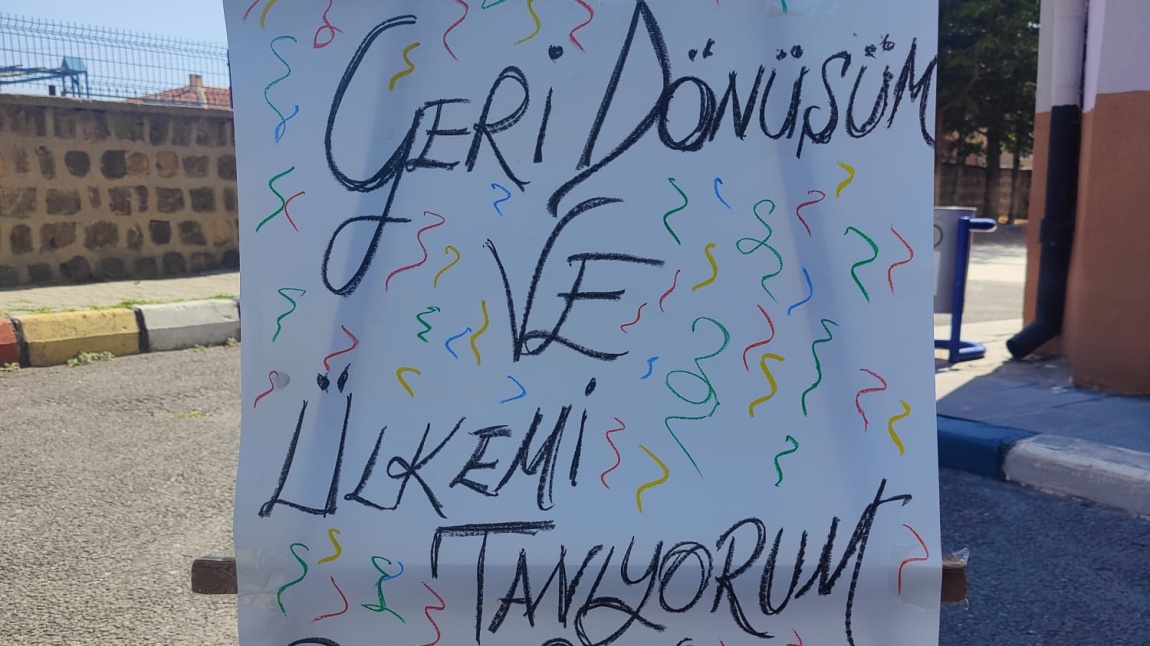 GERİ DÖNÜŞÜM
VE
ÜLKEMİ
TANIYORUM